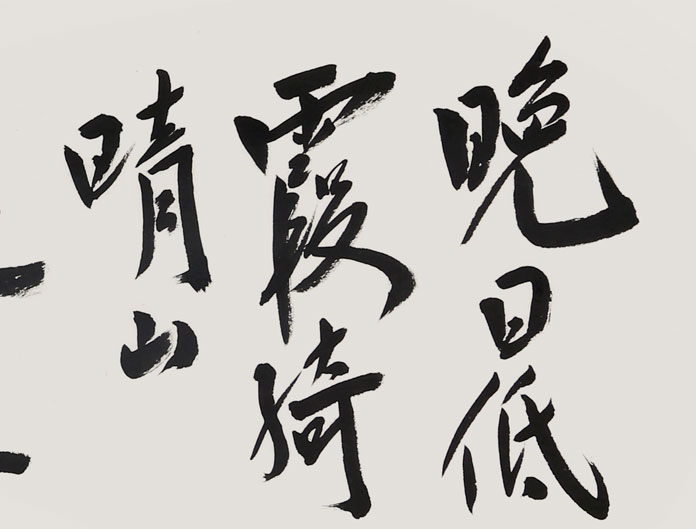 晚日低
霞綺
晴山